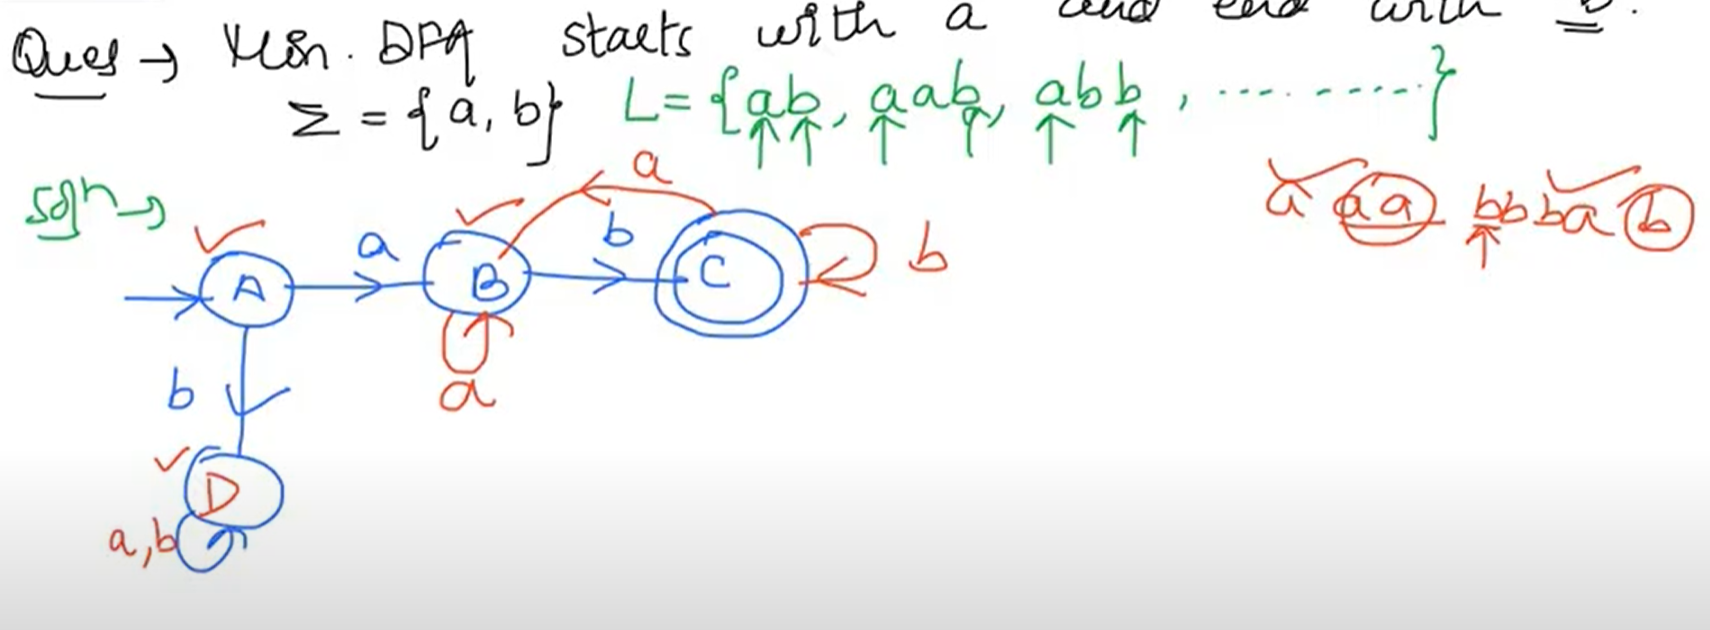 Ques → Min. DFA starts with a and end with b.
Σ = {a, b} L = {ab, aab, abb, ..........}
Soln →
a
a aa bbba b
A a B b C b
b a
D
a,b